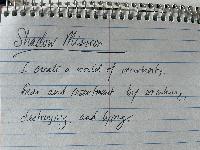 Shadow Mirror
I create a world of uncertainty,
fear and resentment by breaking,
destroying and lying.